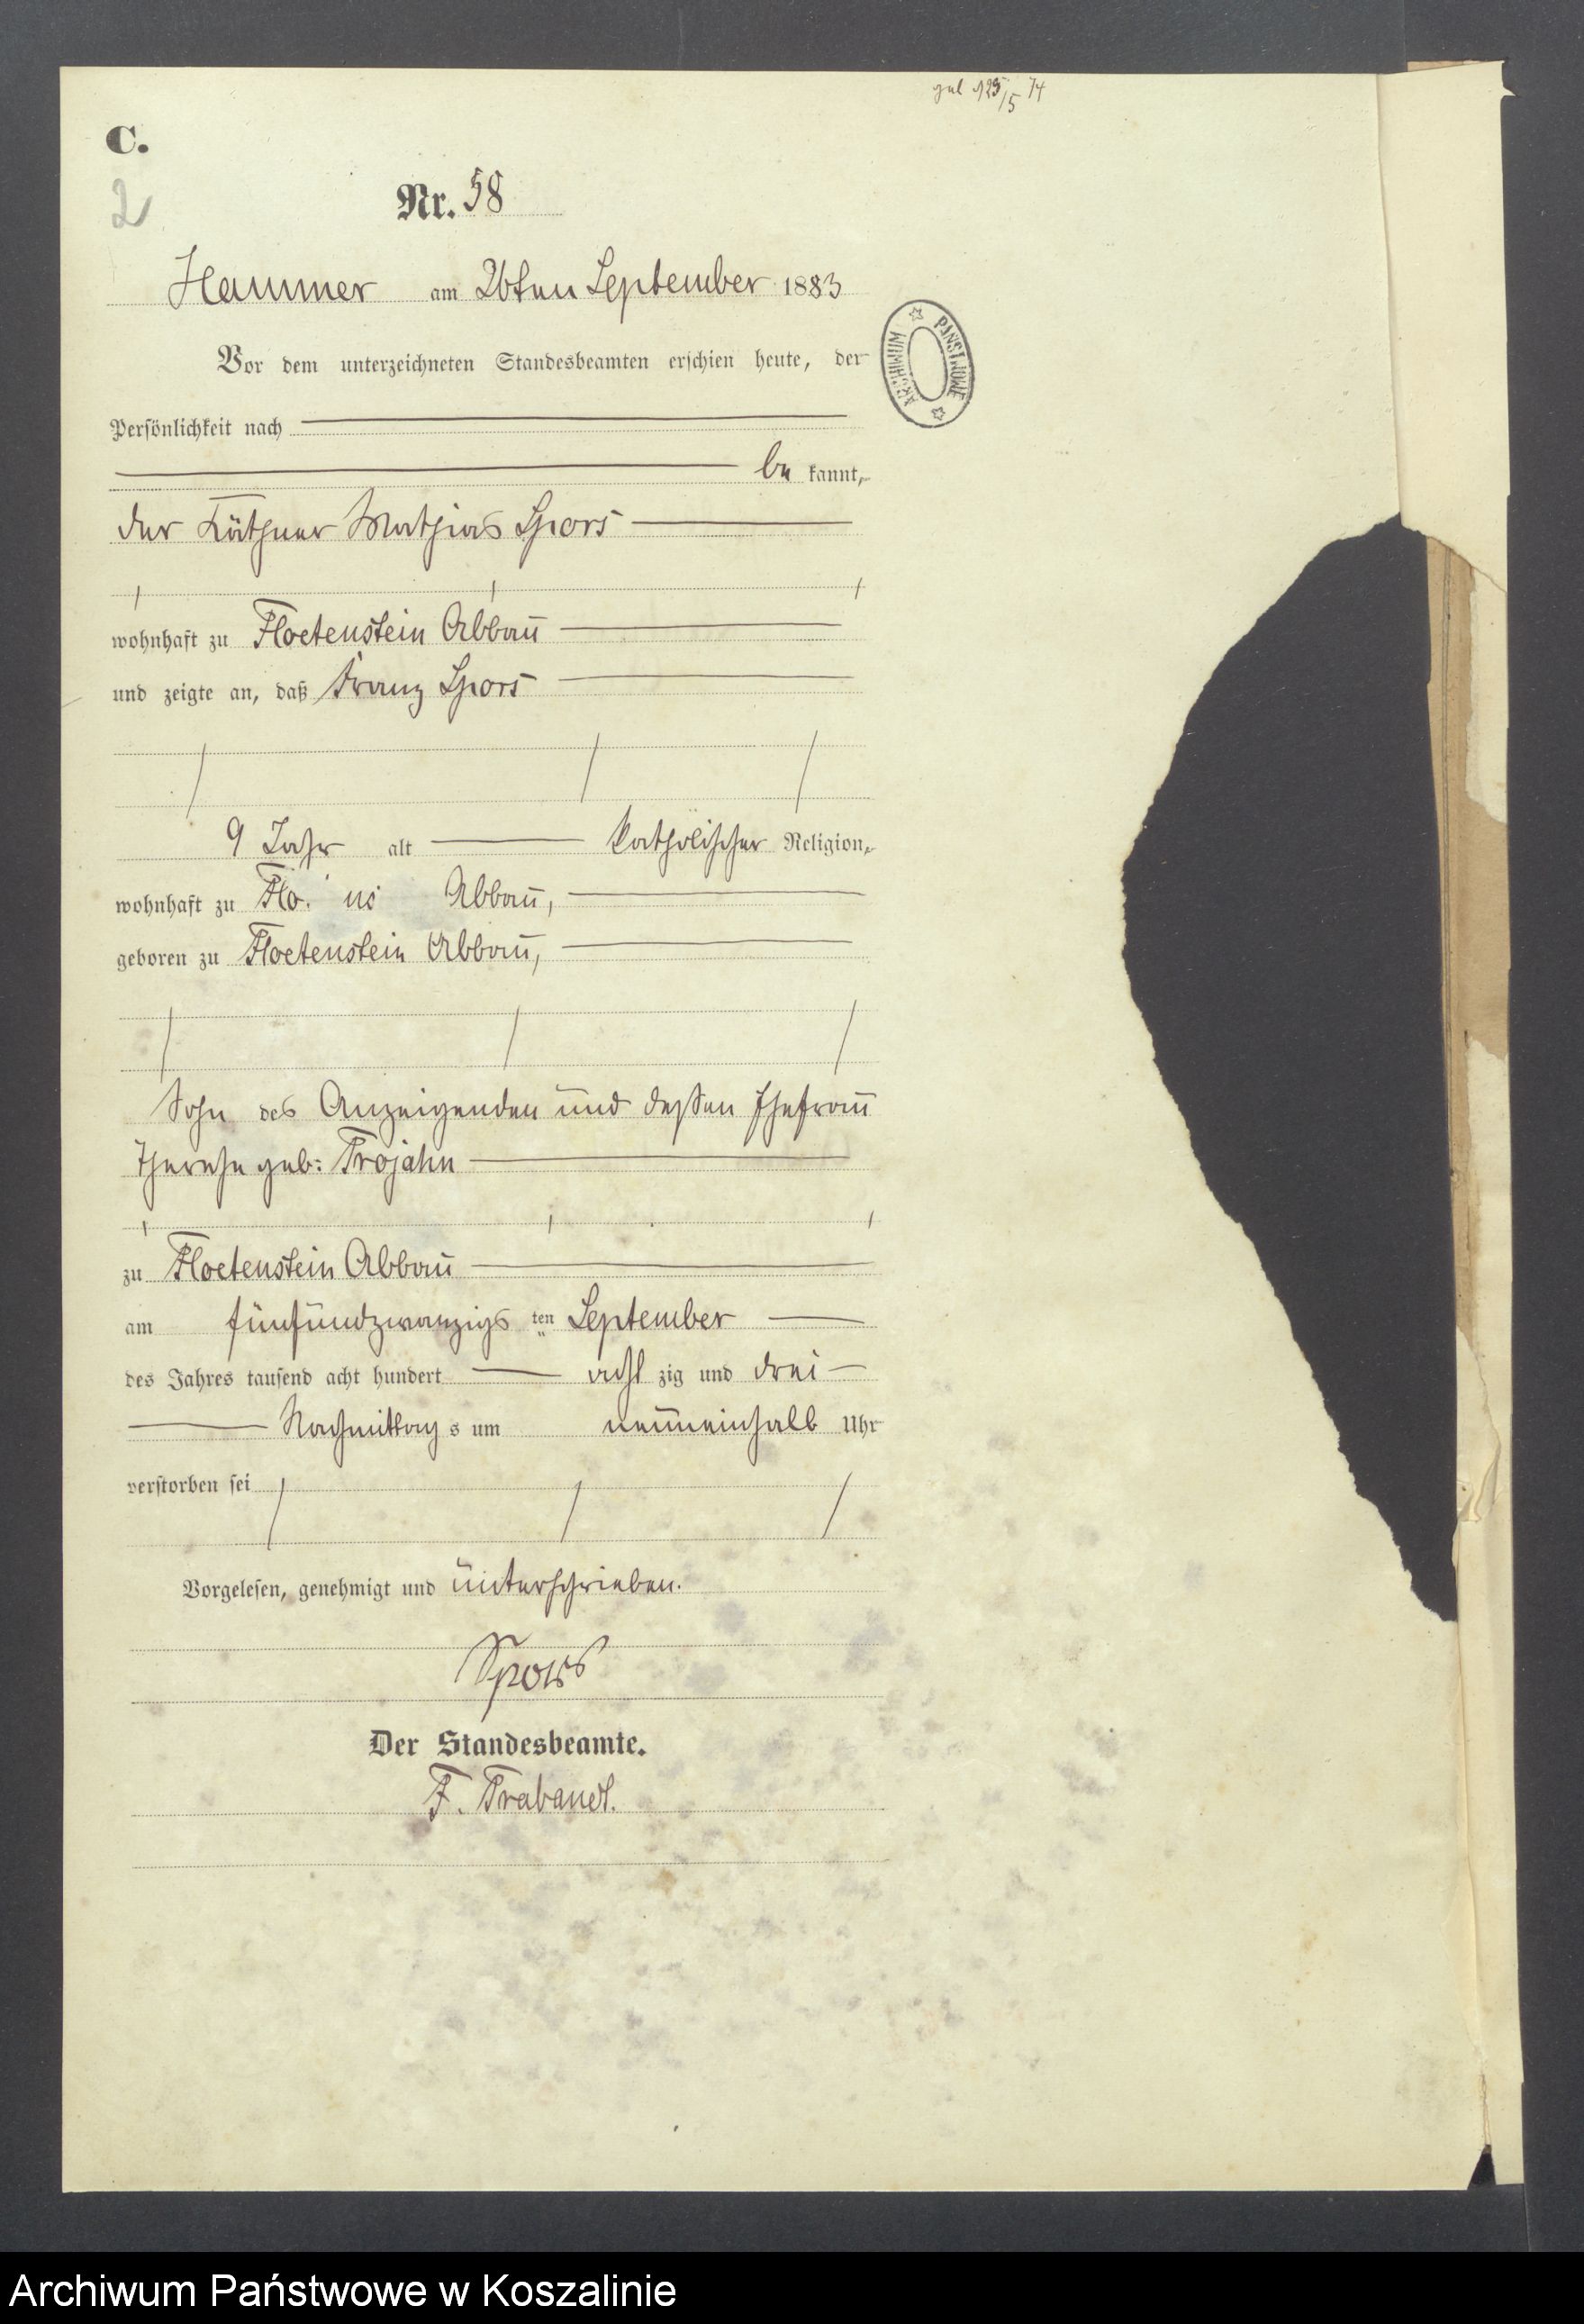 geb 123/5 74
C.
2
Nr. 58
Hammer am 26ten September 1883
Vor dem unterzeichneten Standesbeamten erschien heute, der
Persönlichkeit nach
be kannt,
der Käthner Mathias Spors
wohnhaft zu Floetenstein Abbau
und zeigte an, daß Franz Spors
9 Jahr alt katholischer Religion,
wohnhaft zu Flo. Abbau,
geboren zu Floetenstein Abbau,
Sohn des Anzeigenden und deßen Ehefrau
Therese geb: Trojahn
zu Floetenstein Abbau
am fünfundzwanzigs ten September
des Jahres tausend acht hundert acht zig und drei
Nachmittag s um neuneinhalb Uhr
verstorben sei
Vorgelesen, genehmigt und unterschrieben.
Spors
Der Standesbeamte.
F. Trabandt.
ARCHIWUM PAŃSTWOWE
Archiwum Państwowe w Koszalinie